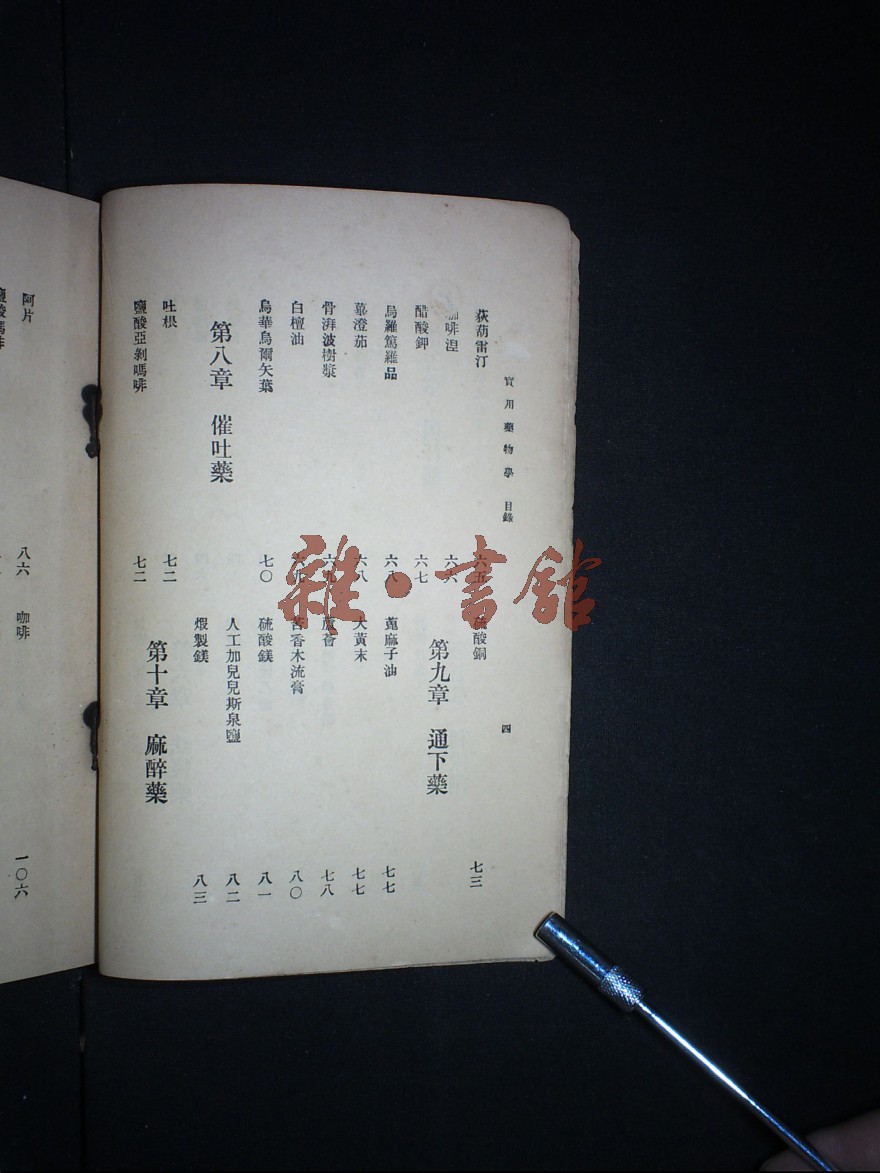 實用藥物學 目錄 四
荻葫雷汀 六五
咖啡涅 六六
醋酸鉀 六七
烏羅篤羅品 六八
蓽澄茄 六八
骨湃波樹漿 六九
白檀油
烏華烏爾矢葉 七〇
第八章 催吐藥
吐根 七二
鹽酸亞剝嗎啡 七二
硫酸銅 七三
第九章 通下藥
蓖麻子油 七七
大黃末 七七
蘆薈 七八
苦香木流膏 八〇
硫酸鎂 八一
人工加兒兒斯泉鹽 八二
煆製鎂 八三
第十章 麻醉藥
阿片 八六
咖啡 一〇六
雜·書館